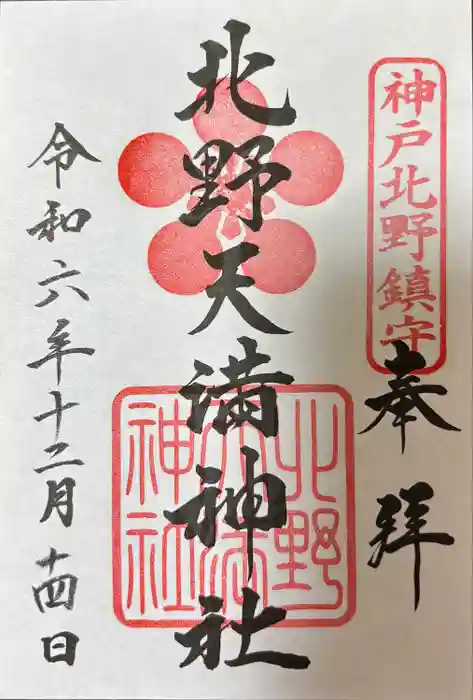 神戸北野鎮守
奉拝
北野天満神社
北野天満神社
令和六年十二月十四日